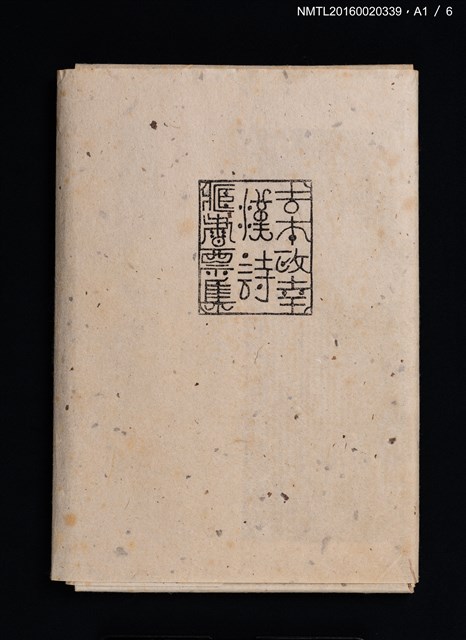 NMTL20160020339,A1 / 6
吉本政幸
漢詩
蔵書票集